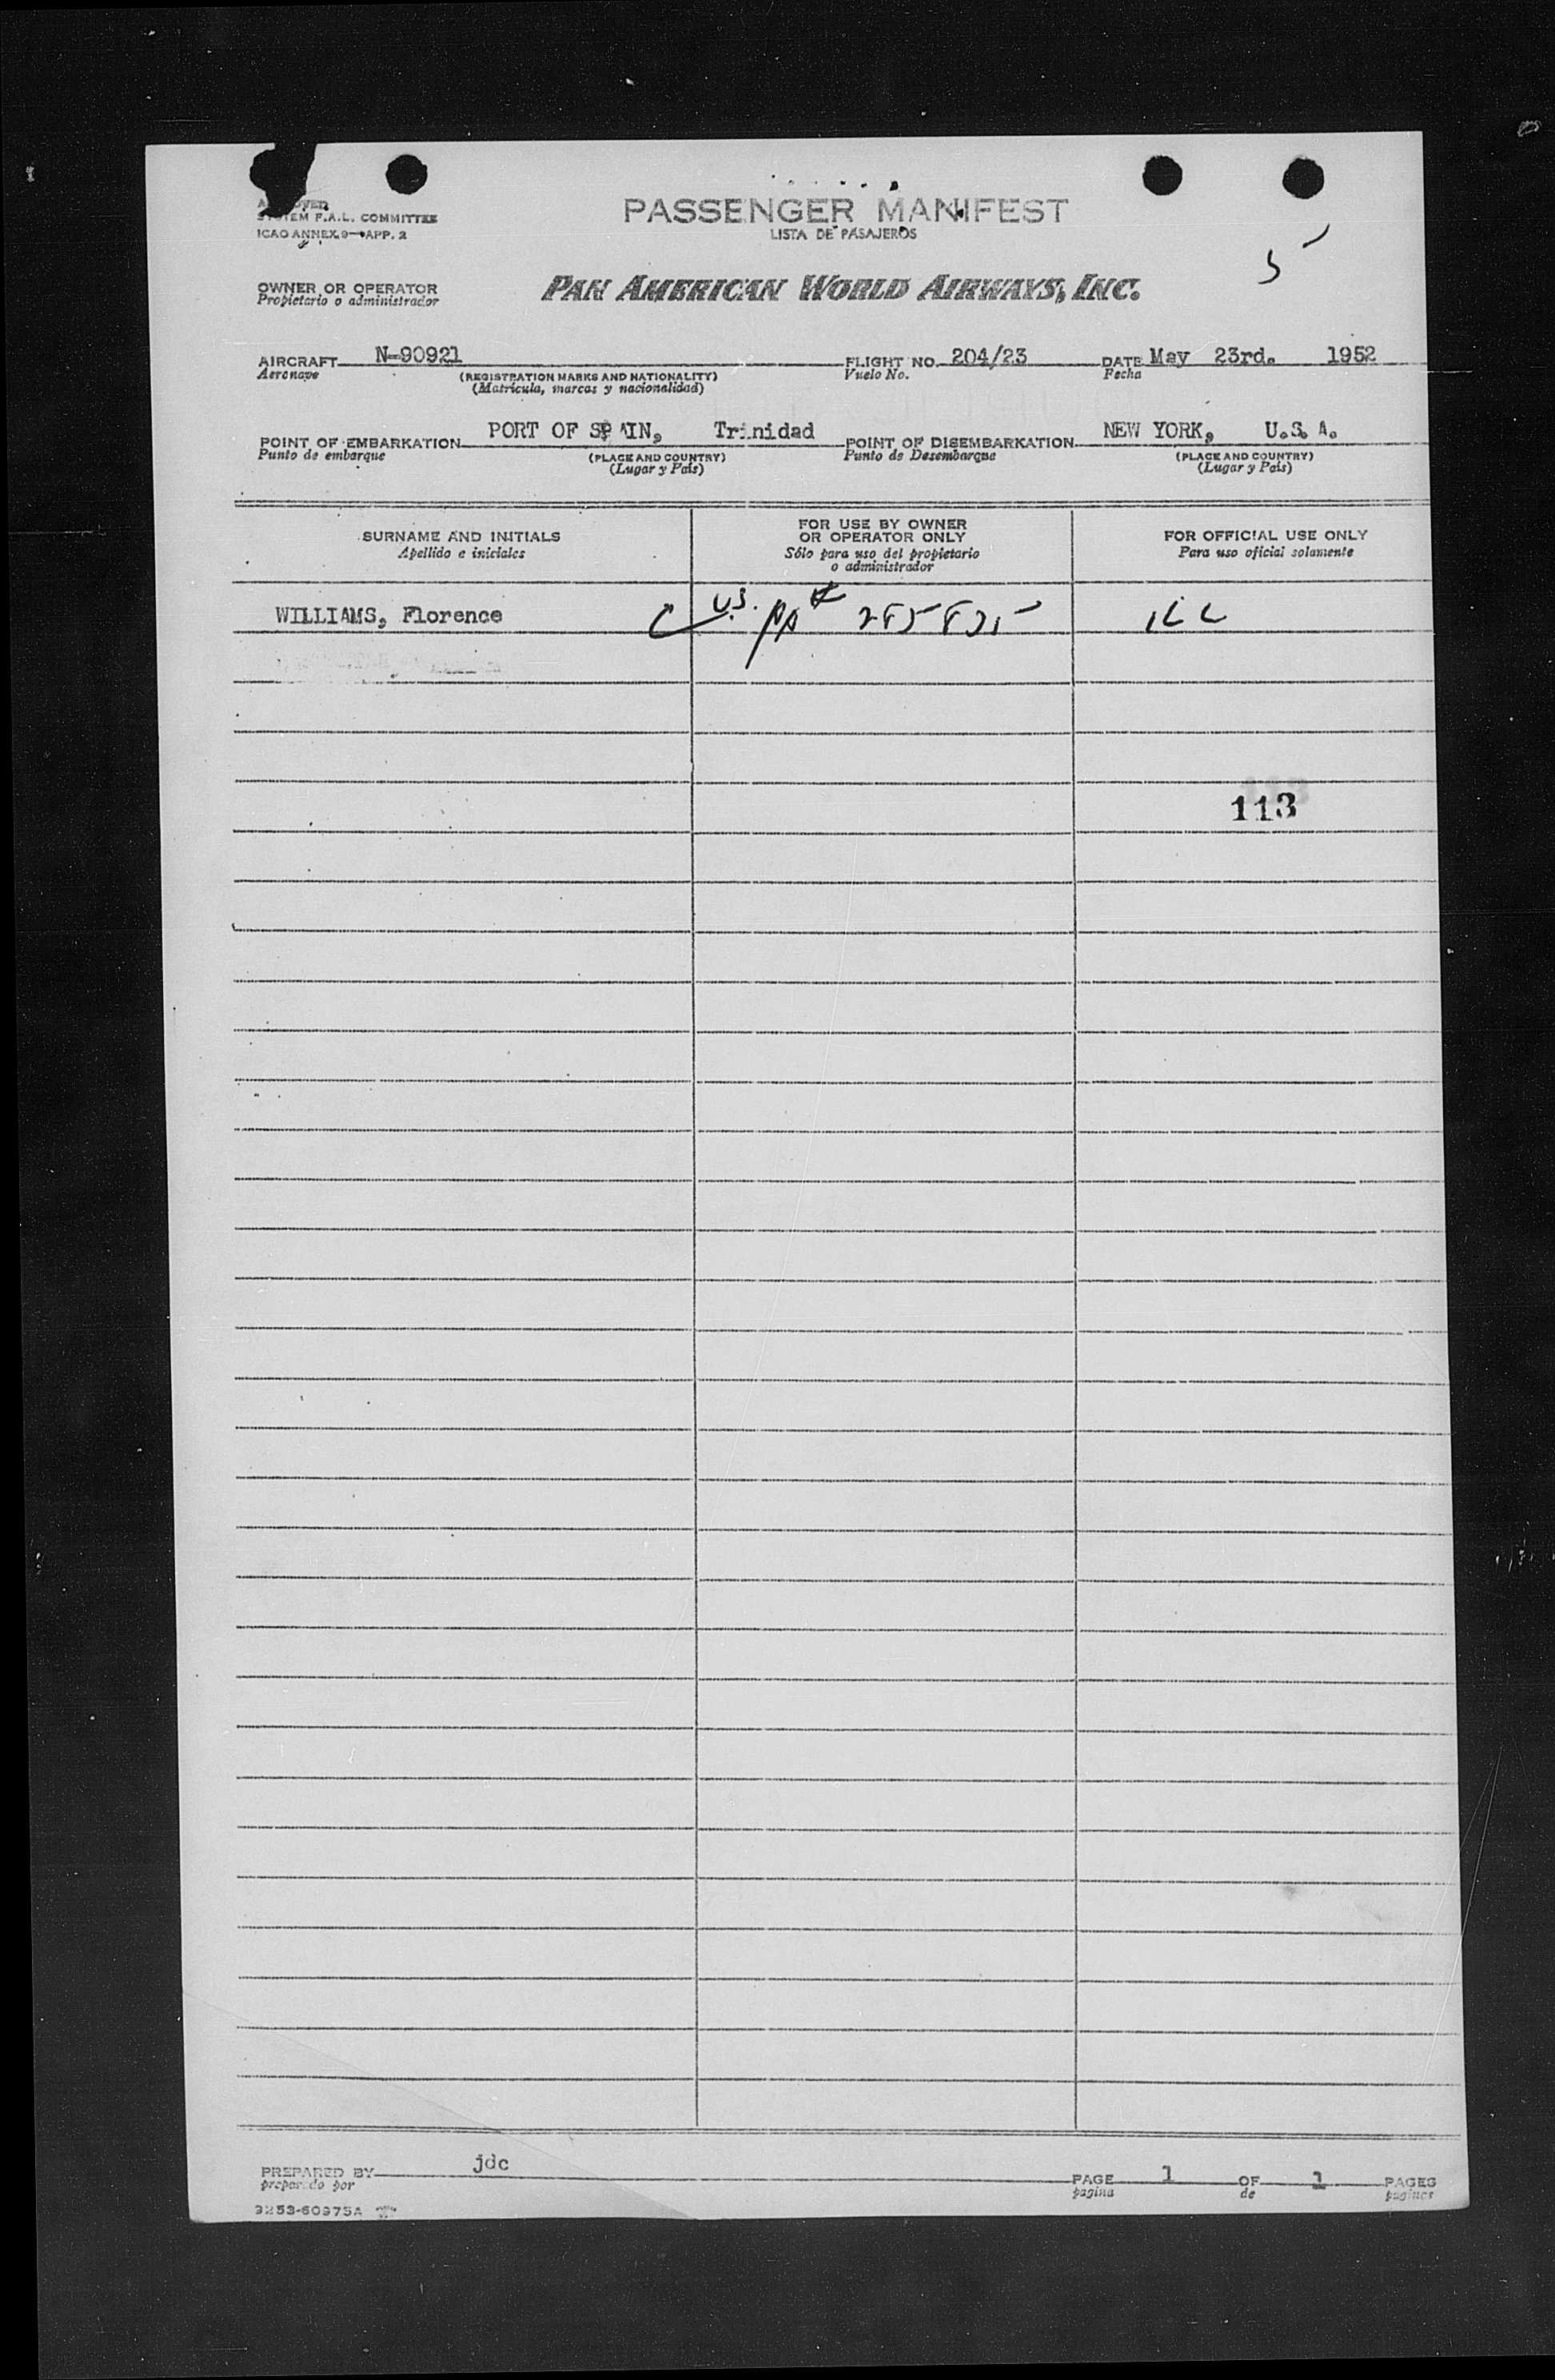 APPROVED
SYSTEM F.A.L. COMMITTEE
ICAO ANNEX 9—APP. 2
PASSENGER MANIFEST
LISTA DE PASAJEROS
5
OWNER OR OPERATOR
Propietario o administrador
PAN AMERICAN WORLD AIRWAYS, INC.
AIRCRAFT N-90921 FLIGHT NO. 204/23 DATE May 23rd. 1952
Aeronave (REGISTRATION MARKS AND NATIONALITY) Vuelo No. Fecha
(Matrícula, marcas y nacionalidad)
POINT OF EMBARKATION PORT OF SPAIN, Trinidad POINT OF DISEMBARKATION NEW YORK, U.S.A.
Punto de embarque (PLACE AND COUNTRY) Punto de Desembarque (PLACE AND COUNTRY)
(Lugar y País) (Lugar y País)
SURNAME AND INITIALS
Apellido e iniciales
FOR USE BY OWNER
OR OPERATOR ONLY
Sólo para uso del propietario
o administrador
FOR OFFICIAL USE ONLY
Para uso oficial solamente
WILLIAMS, Florence U.S. PP#
113
PREPARED BY jdc PAGE 1 OF 1 PAGES
preparado por pagina de paginas
3253-60975A